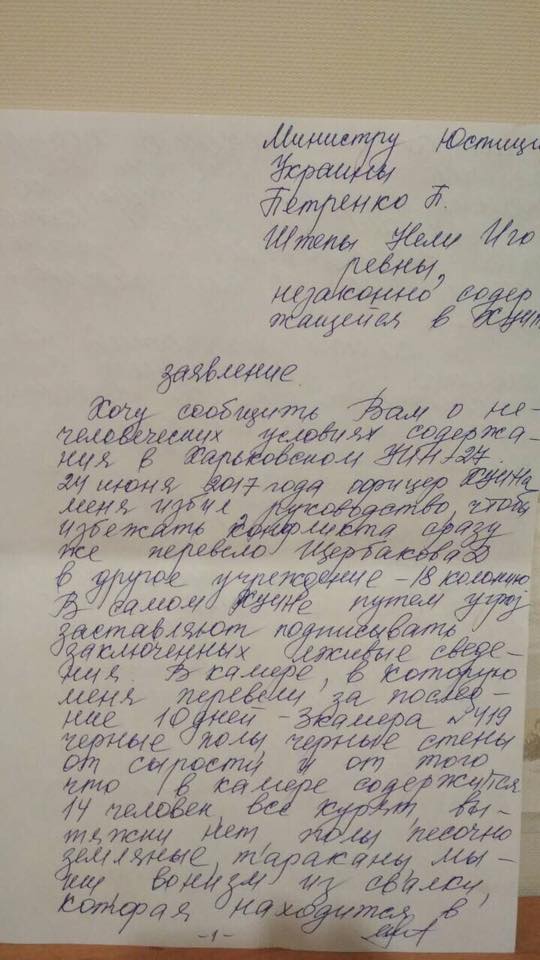 Министру Юстици
Украины
Петренко П.
Штепы Нели Иго
ревны,
незаконно содер
жащейся в ХУИН
заявление.
Хочу сообщить Вам о не-
человеческих условиях содержа-
ния в Харьковском УИН-27.
24 июня 2017 года офицер ХУИНа
меня избил, руководство, чтобы
избежать конфликта, сразу
же перевело Щербакова Д
в другое учреждение - 18 колонию
В самом ХУИНе путем угроз
заставляют подписывать
заключенных лживые сведе-
ния. В камере, в которую
меня перевели за послед-
ние 10 дней - 3 камера №419
черные полы, черные стены
от сырости и от того
что в камере содержится
14 человек, все курят, вы-
тяжки нет полы песочно
земляные, тараканы, мы-
ши, вонизм из свалки,
которая находится в
-1-